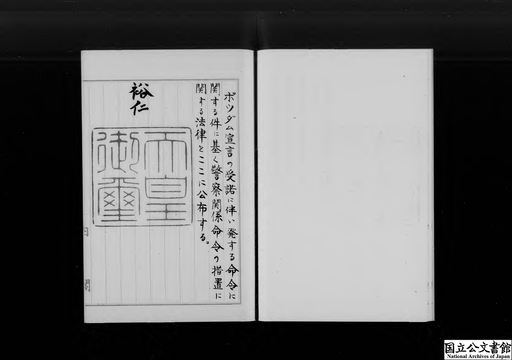 ポツダム宣言の受諾に伴い発する命令に
関する件に基く警察関係命令の措置に
関する法律をここに公布する。
裕仁
天皇
御璽
国立公文書館
National Archives of Japan